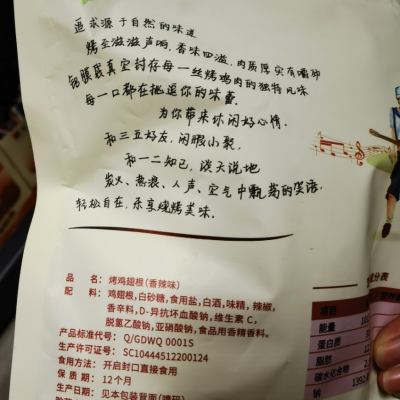 追求源于自然的味道
烤至滋滋声响,香味四溢,肉质厚实有嚼劲
铝膜袋真空封存每一丝烤鸡肉的独特风味
每一口都在挑逗你的味蕾
为你带来休闲好心情
和三五好友,闲暇小聚
和一二知己,谈天说地
炭火、热浪、人声、空气中飘荡的笑语
轻松自在,乐享烧烤美味
品 名:烤鸡翅根(香辣味)
配 料:鸡翅根,白砂糖,食用盐,白酒,味精,辣椒,
香辛料,D-异抗坏血酸钠,维生素C,
脱氢乙酸钠,亚硝酸钠,食品用香精香料。
产品标准代号:Q/GDWQ 0001S
生产许可证号:SC10444512200124
食用方法:开启封口直接食用
保 质 期:12个月
生产日期:见本包装背面(喷码)
成分表
项目
能量
蛋白质
脂肪
碳水化合物
钠
1392